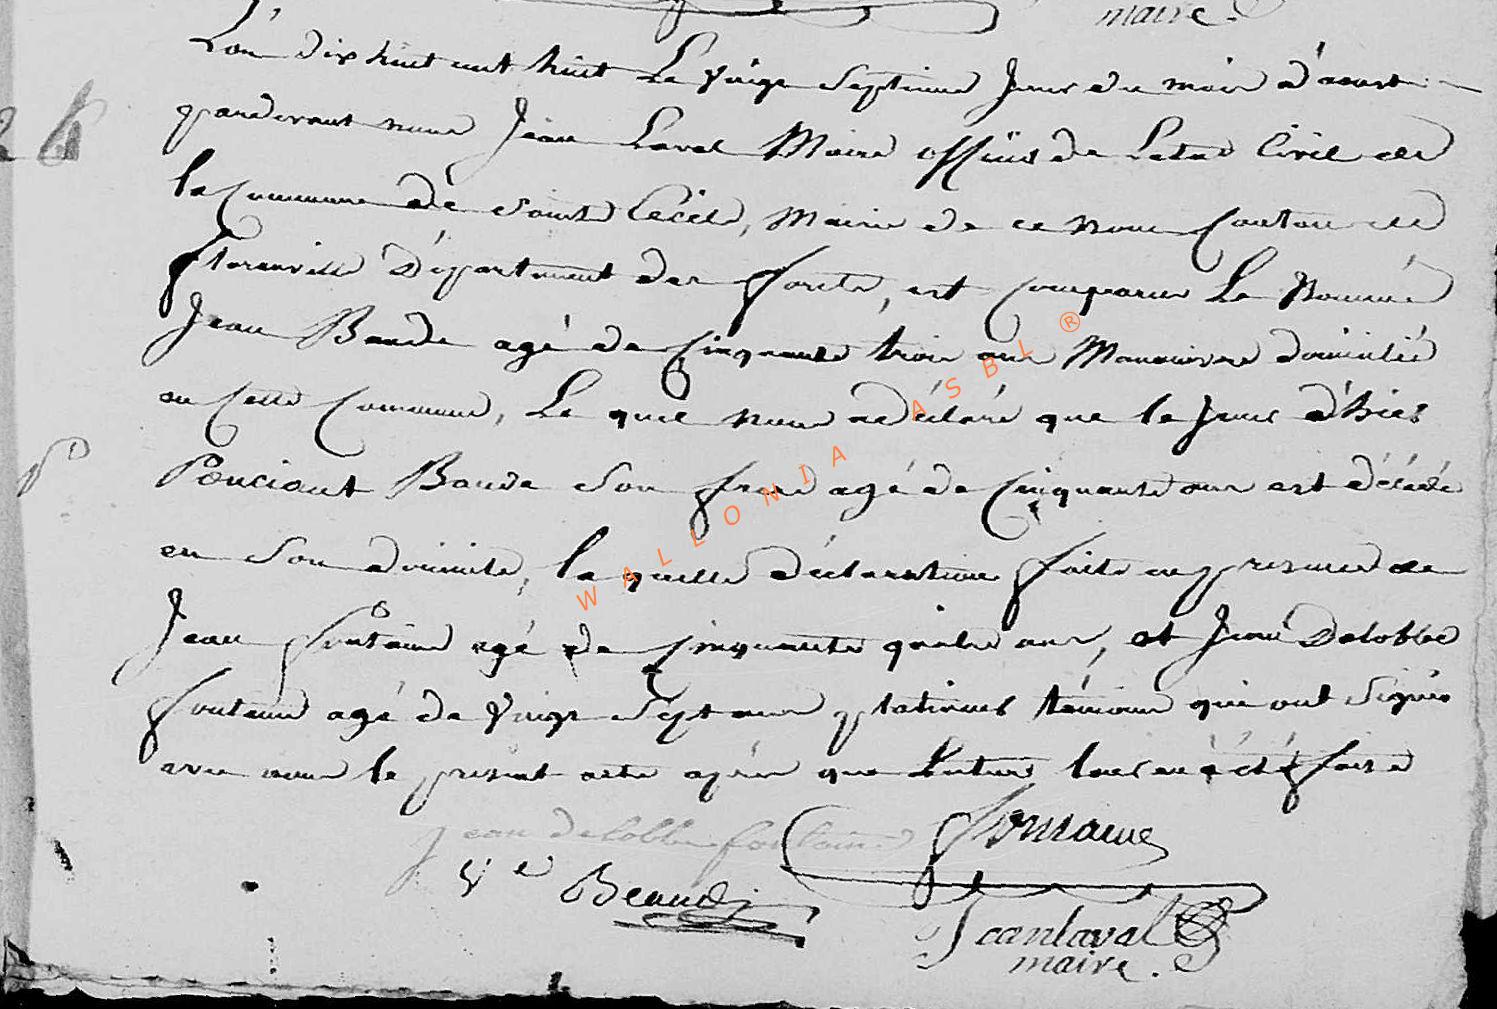 maire.
L'an dix huit cent huit Le Vingt Septieme Jour du mois d'aoust
pardevant nous Jean Laval Maire officier de Letat Civil de
la Commune de Sainte Cécile, Mairie de ce nom Canton de
florenville Département des forets, est comparu Le Nommé
Jean Baude agé de Cinquante trois ans Manoeuvre domicilié
en Cette Commune, Le quel nous a déclaré que le Jour d'hier
Ponciant Baude Son frere agé de Cinquante ans est décédé
en Son domicile, la quelle déclaration faite en presence de
Jean fontaine agé de Cinquante quatre ans, et Jean Delobbe
fontaine agé de Vingt Sept ans platineur témoins qui ont Signés
avec nous le present acte après que Lecture leur en a été faite
jean delobbe fontaine
fontaine
Beaude
Jean laval
maire.
26
WALLONIA ASBL ®